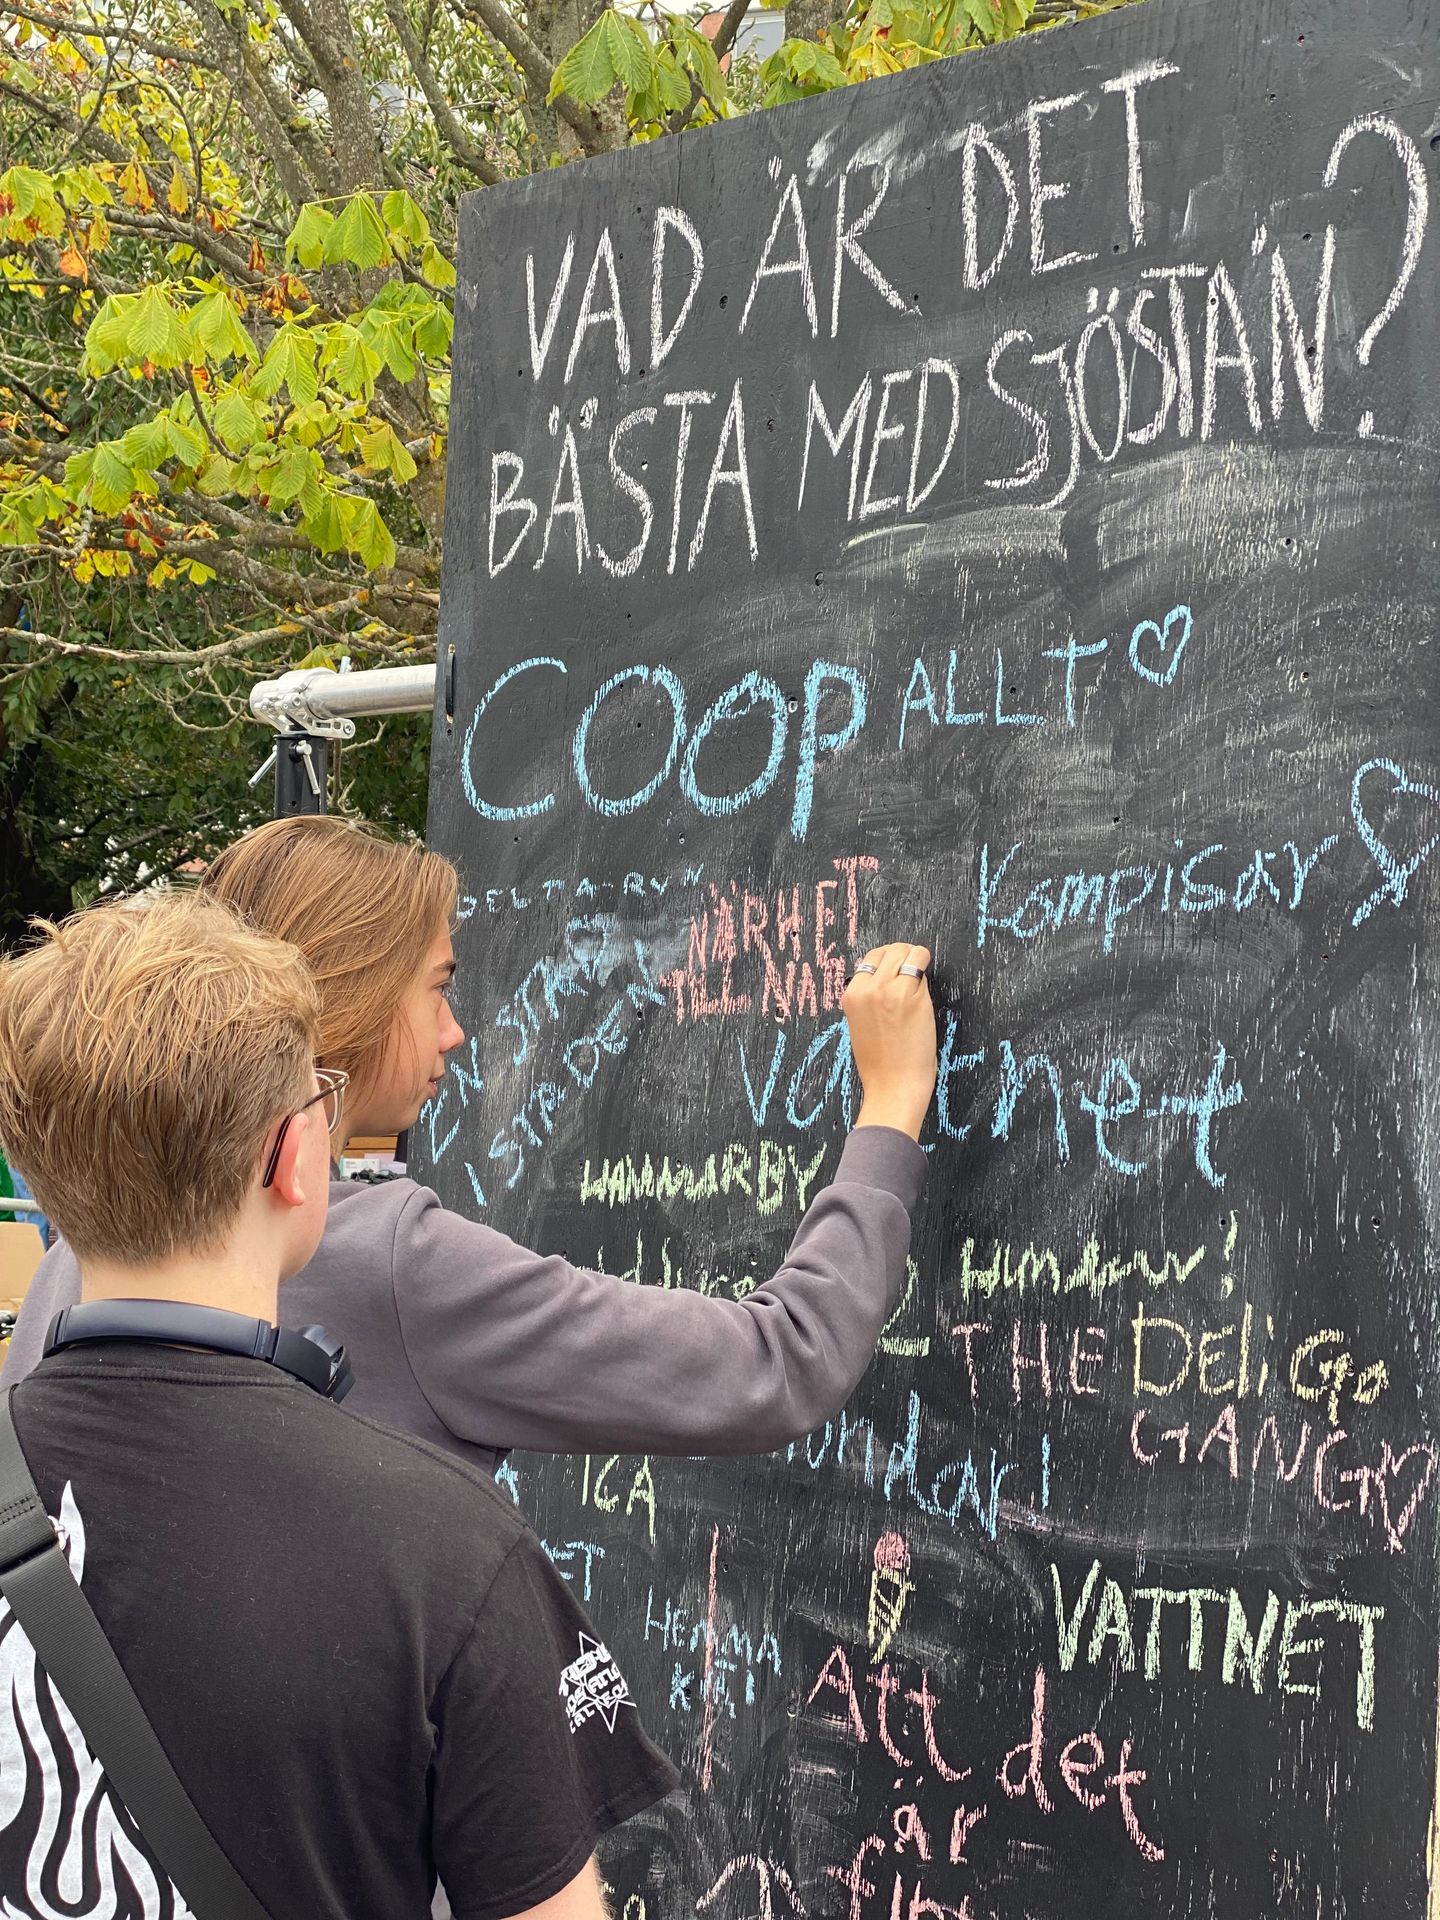 VAD ÄR DET
BÄSTA MED SJÖSTAN?
COOP ALLT
Kompisar
NÄRHET
TILL NA
EN STAD
I STADEN
vattnet
HAMMARBY
THE DELiGo
GANG
ICA
VATTNET
HEMMA
Att
det
är